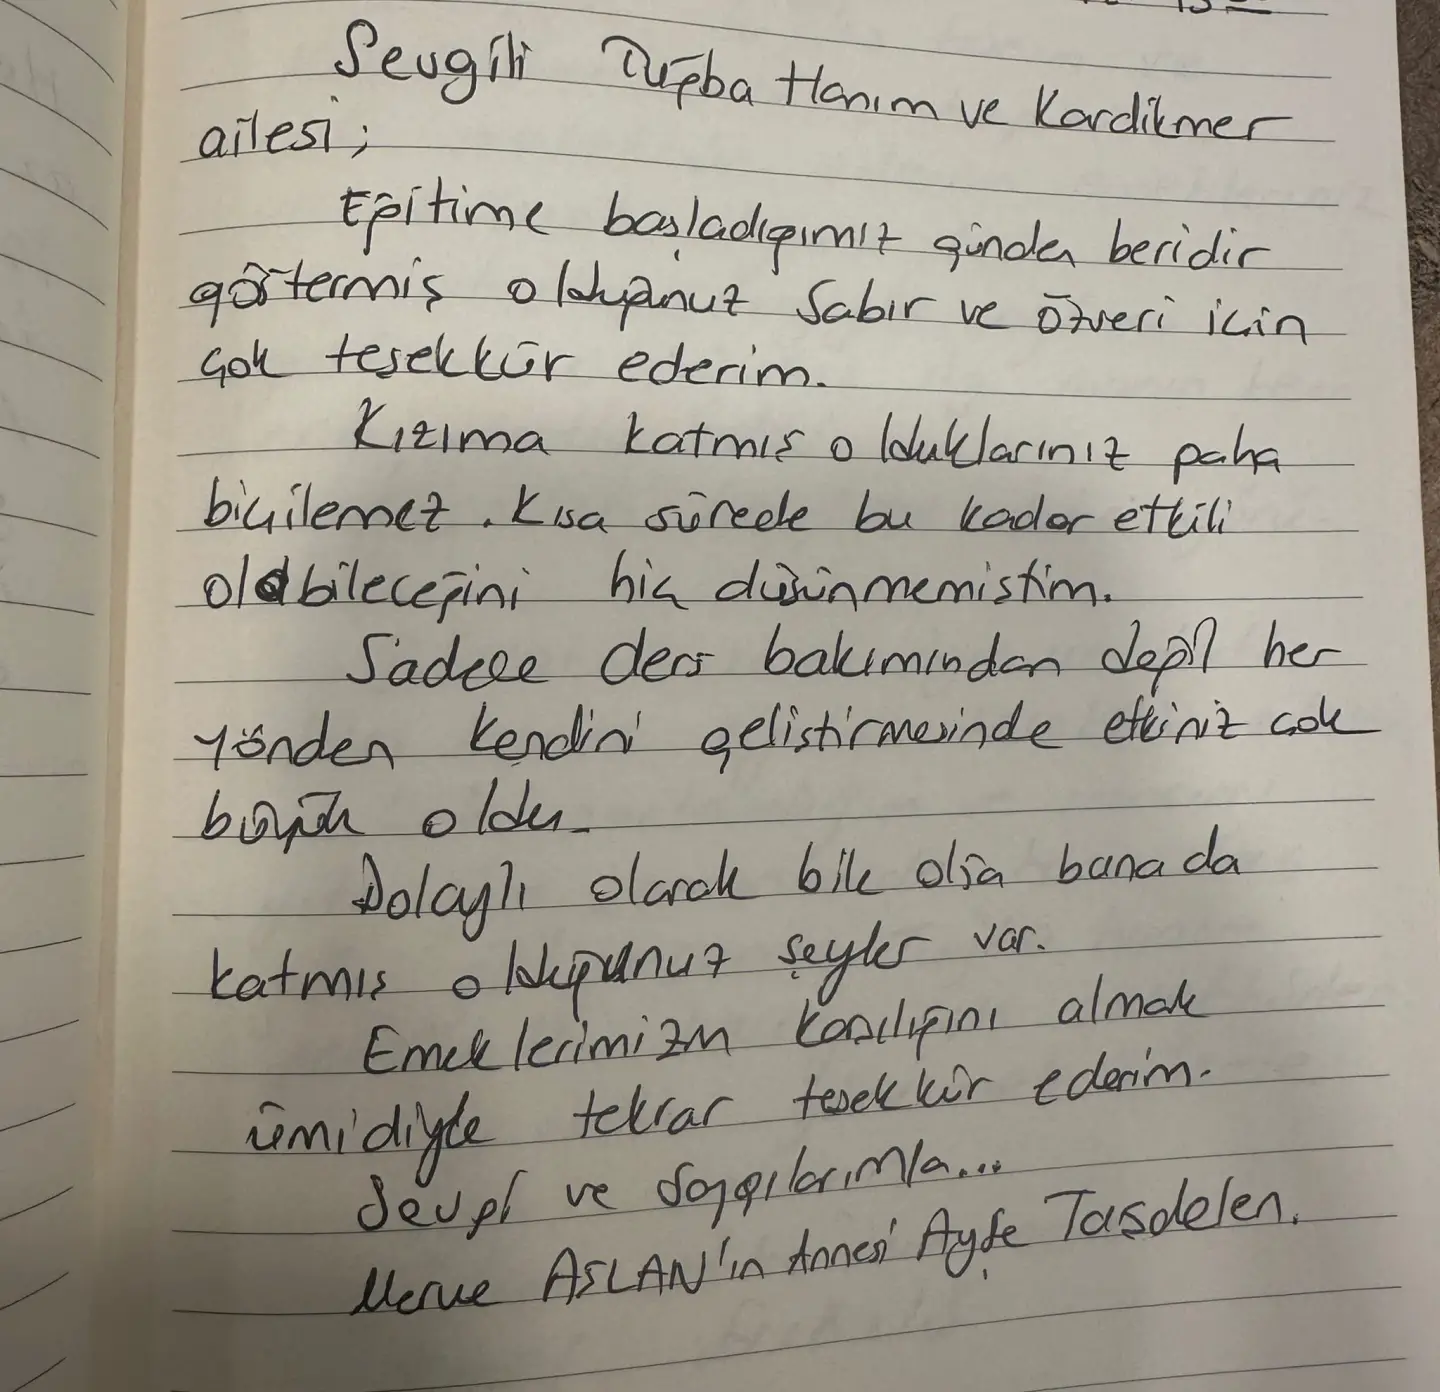 Sevgili Tuğba Hanım ve Kardikmer
ailesi;
Eğitime başladığımız günden beridir
göstermiş olduğunuz sabır ve özveri için
çok teşekkür ederim.
Kızıma katmış olduklarınız paha
biçilemez. Kısa sürede bu kadar etkili
olabileceğini hiç düşünmemiştim.
Sadece ders bakımından değil her
yönden kendini geliştirmesinde etkiniz çok
büyük oldu.
Dolaylı olarak bile olsa bana da
katmış olduğunuz şeyler var.
Emeklerimizin karşılığını almak
ümidiyle tekrar teşekkür ederim.
Sevgi ve saygılarımla...
Merve ASLAN'ın Annesi Ayşe Taşdelen.